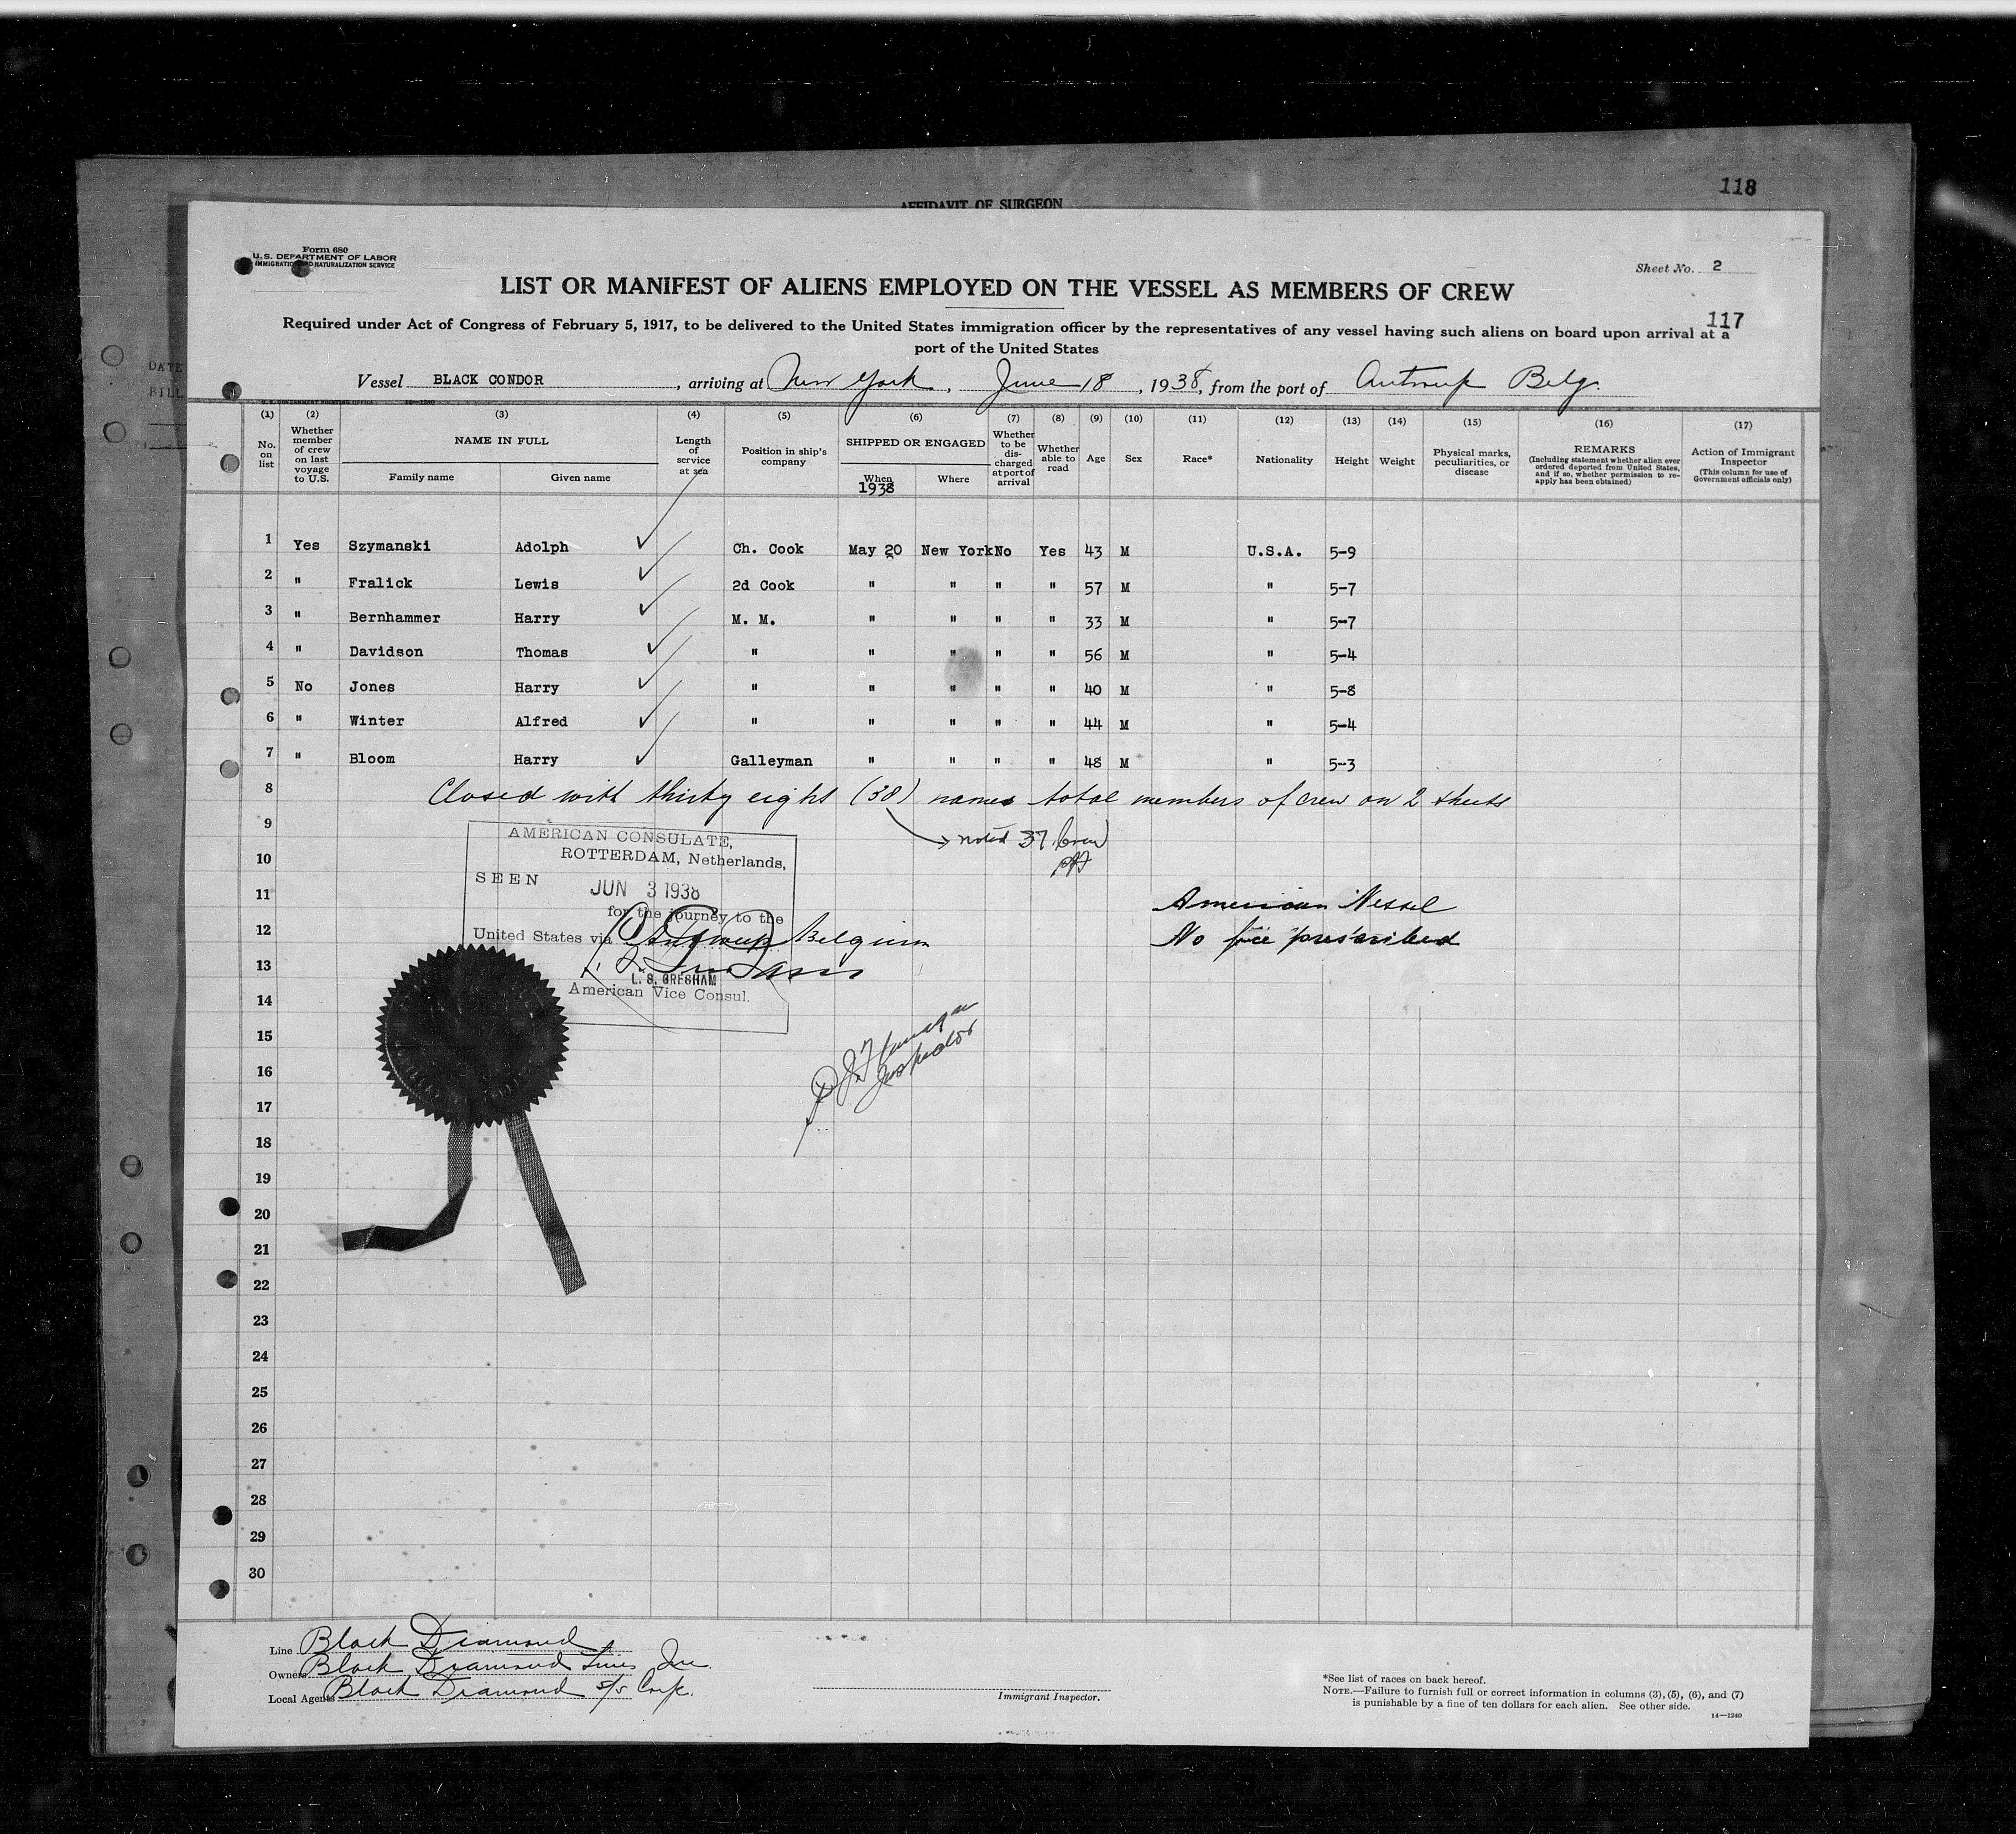 118
AFFIDAVIT OF SURGEON
DATE
BILL
Form 680
U. S. DEPARTMENT OF LABOR
IMMIGRATION AND NATURALIZATION SERVICE
Sheet No. 2
LIST OR MANIFEST OF ALIENS EMPLOYED ON THE VESSEL AS MEMBERS OF CREW
117
Required under Act of Congress of February 5, 1917, to be delivered to the United States immigration officer by the representatives of any vessel having such aliens on board upon arrival at a
port of the United States
Vessel BLACK CONDOR, arriving at New York, June 18, 1938, from the port of Antwerp Belg.
(1) (2) (3) (4) (5) (6) (7) (8) (9) (10) (11) (12) (13) (14) (15) (16) (17)
No. on list
Whether member of crew on last voyage to U.S.
NAME IN FULL
Family name Given name
Length of service at sea
Position in ship's company
SHIPPED OR ENGAGED
When Where
1938
Whether to be discharged at port of arrival
Whether able to read
Age Sex Race* Nationality Height Weight
Physical marks, peculiarities, or disease
REMARKS
(Including statement whether alien ever ordered deported from United States, and if so, whether permission to re-apply has been obtained)
Action of Immigrant Inspector
(This column for use of Government officials only)
1 Yes Szymanski Adolph ✓ Ch. Cook May 20 New York No Yes 43 M U.S.A. 5-9
2 " Fralick Lewis ✓ 2d Cook " " " " 57 M " 5-7
3 " Bernhammer Harry ✓ M. M. " " " " 33 M " 5-7
4 " Davidson Thomas ✓ " " " " " 56 M " 5-4
5 No Jones Harry ✓ " " " " " 40 M " 5-8
6 " Winter Alfred ✓ " " " " " 44 M " 5-4
7 " Bloom Harry ✓ Galleyman " " " " 48 M " 5-3
8 Closed with thirty eight (38) names total members of crew on 2 sheets
9 noted 37 (crew)
10
11 American Vessel
12 No fee prescribed
13
14
15
16
17
18
19
20
21
22
23
24
25
26
27
28
29
30
AMERICAN CONSULATE,
ROTTERDAM, Netherlands,
SEEN
JUN 3 1938
for the journey to the
United States via Antwerp Belgium
L. S. GRESHAM
American Vice Consul.
Inspector
Line Black Diamond
Owners Black Diamond Lines Inc.
Local Agents Black Diamond S/S Corp.
Immigrant Inspector.
*See list of races on back hereof.
NOTE.—Failure to furnish full or correct information in columns (3), (5), (6), and (7)
is punishable by a fine of ten dollars for each alien. See other side.
14—1240